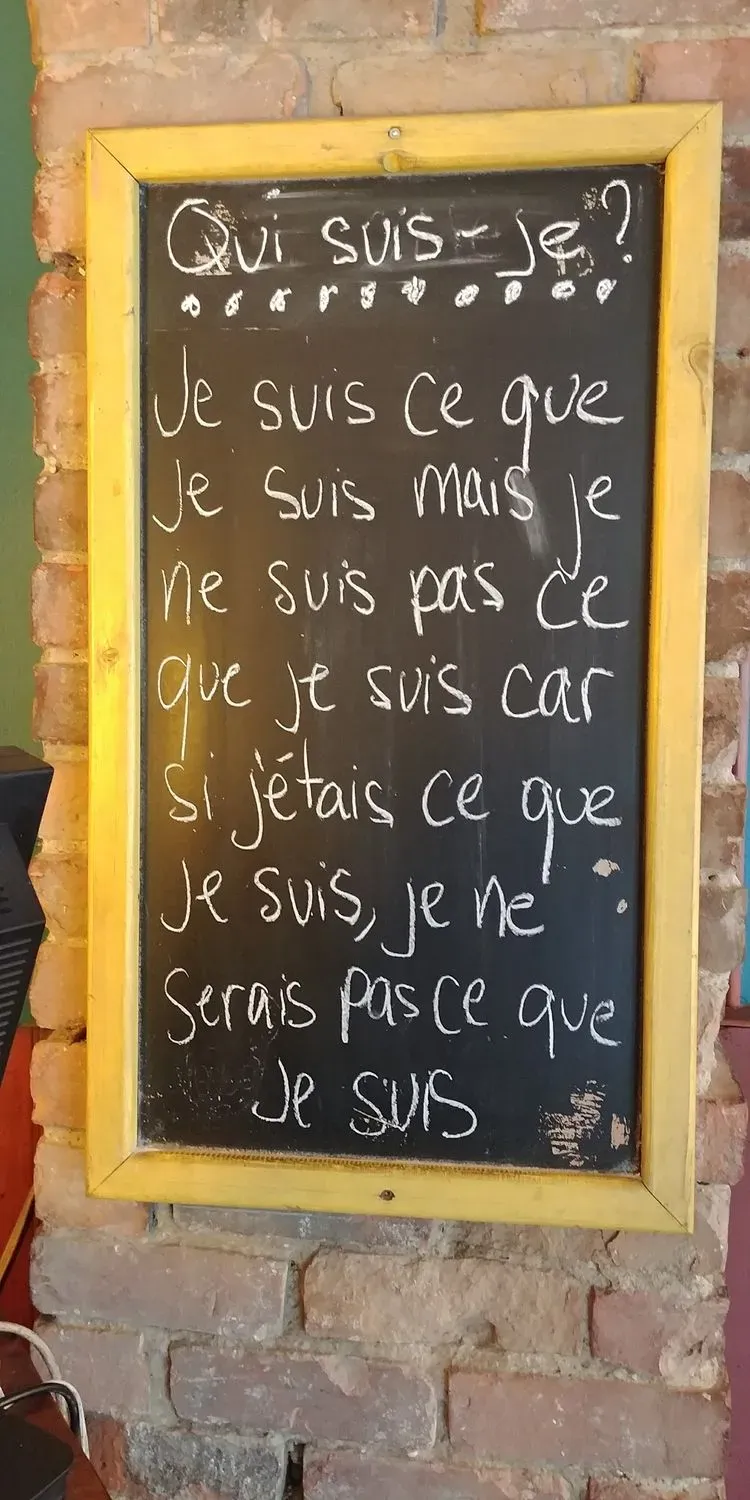 Qui suis-je?
Je suis ce que
Je suis mais je
ne suis pas ce
que je suis car
si j'étais ce que
Je suis, je ne
serais pas ce que
Je suis